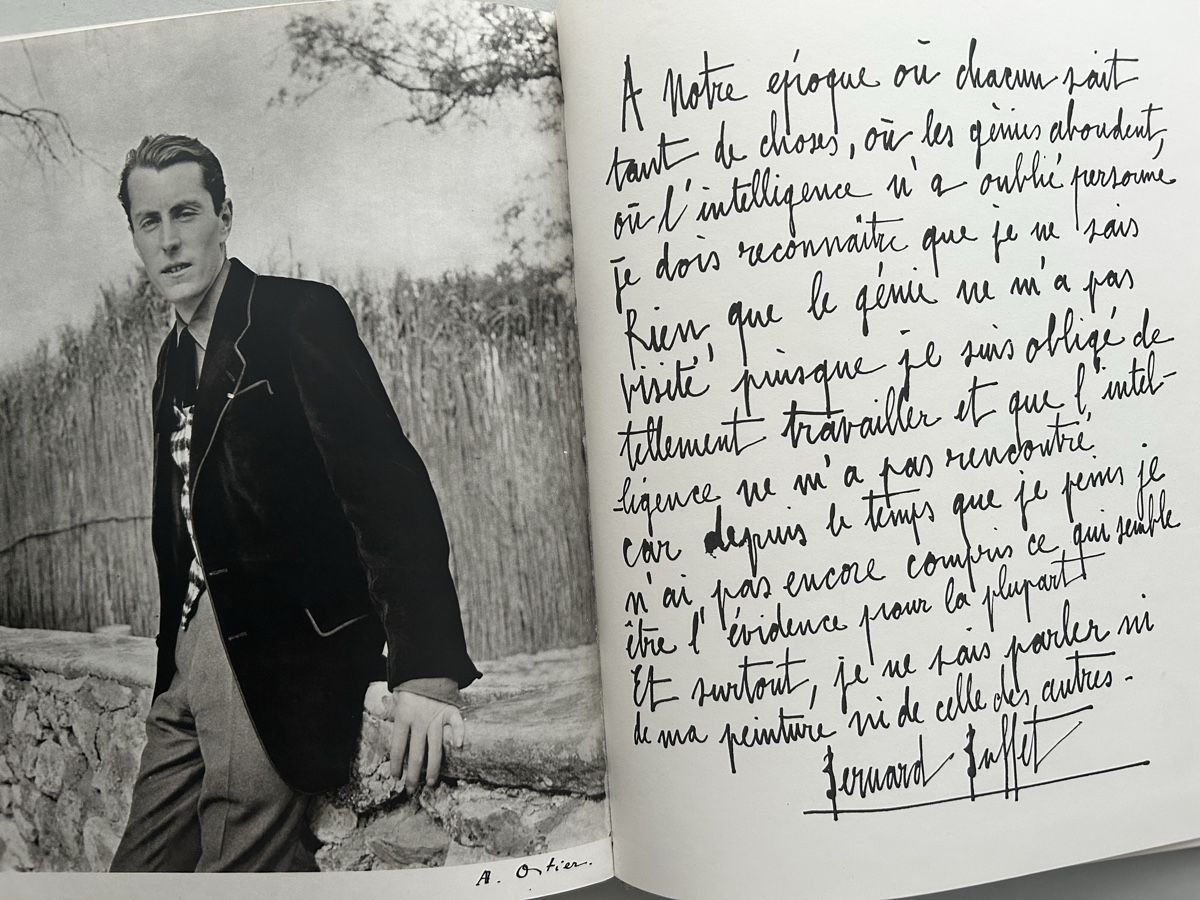 A. Ostier.
A Notre epoque où chacun sait
tant de choses, où les génies abondent,
où l'intelligence n'a oublié personne
je dois reconnaître que je ne sais
Rien, que le génie ne m'a pas
visité, puisque je suis obligé de
tellement travailler et que l'intel-
-ligence ne m'a pas rencontré,
car depuis le temps que je peins je
n'ai pas encore compris ce qui semble
être l'évidence pour la plupart
Et surtout, je ne sais parler ni
de ma peinture ni de celle des autres.
Bernard Buffet